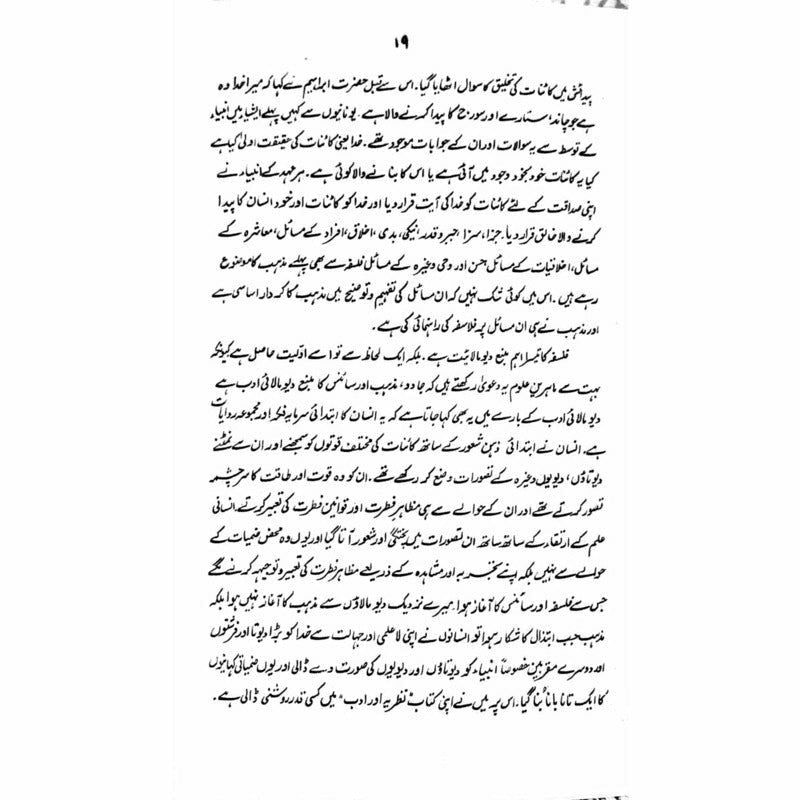 ۱۹
پیدائش میں کائنات کی تخلیق کا سوال اٹھایا گیا۔ اس سے قبل حضرت ابراہیم نے کہا کہ میرا خدا وہ
ہے جو چاند، ستارے اور سورج کا پیدا کرنے والا ہے۔ یونانیوں سے کہیں پہلے ایشیا میں انبیاء
کے توسط سے یہ سوالات اور ان کے جوابات موجود تھے۔ خدا یعنی کائنات کی حقیقت اولیٰ کیا ہے
کیا یہ کائنات خود بخود وجود میں آئی ہے یا اس کا بنانے والا کوئی ہے۔ ہر عہد کے انبیاء نے
اپنی صداقت کے لئے کائنات کو خدا کی آیت قرار دیا اور خدا کو کائنات اور خود انسان کا پیدا
کرنے والا خالق قرار دیا۔ جزا، سزا، جبر و قدر، نیکی، بدی، اخلاق، افراد کے مسائل، معاشرہ کے
مسائل، اخلاقیات کے مسائل حسن اور وحی وغیرہ کے مسائل فلسفہ سے بھی پہلے مذہب کا موضوع
رہے ہیں۔ اس میں کوئی شک نہیں کہ ان مسائل کی تفہیم و توضیح میں مذہب کا کردار اساسی ہے
اور مذہب نے ہی ان مسائل پر فلاسفہ کی راہنمائی کی ہے۔
فلسفہ کا تیسرا اہم منبع دیو مالائیت ہے۔ بلکہ ایک لحاظ سے تو اسے اوّلیت حاصل ہے کیونکہ
بہت سے ماہرین علوم یہ دعویٰ رکھتے ہیں کہ جادو، مذہب اور سائنس کا منبع دیو مالائی ادب ہے
دیو مالائی ادب کے بارے میں یہ بھی کہا جاتا ہے کہ یہ انسان کا ابتدائی سرمایہ فکر اور مجموعہ روایات
ہے۔ انسان نے ابتدائی ذہن شعور کے ساتھ کائنات کی مختلف قوتوں کو سمجھنے اور ان سے نمٹنے
دیوتاؤں، دیویوں وغیرہ کے تصورات وضع کر رکھے تھے۔ ان کو وہ قوت اور طاقت کا سرچشمہ
تصور کرتے تھے اور ان کے حوالے سے ہی مظاہر فطرت اور قوانین فطرت کی تعبیر کرتے، انسانی
علم کے ارتقاء کے ساتھ ساتھ ان تصورات میں پختگی اور شعور آتا گیا اور یوں وہ محض ضمیات کے
حوالے سے نہیں بلکہ اپنے تجربہ اور مشاہدہ کے ذریعے مظاہر فطرت کی تعبیر و توجیہہ کرنے لگے
جس سے فلسفہ اور سائنس کا آغاز ہوا۔ میرے نزدیک دیو مالاؤں سے مذہب کا آغاز نہیں ہوا بلکہ
مذہب جب ابتذال کا شکار ہوا تو انسانوں نے اپنی لاعلمی اور جہالت سے خدا کو بڑا دیوتا اور فرشتوں
اور دوسرے مقربین خصوصاً انبیاء کو دیوتاؤں اور دیویوں کی صورت دے ڈالی اور یوں ضمیاتی کہانیوں
کا ایک تانا بانا بُنا گیا۔ اس پر میں نے اپنی کتاب "نظریہ اور ادب" میں کسی قدر روشنی ڈالی ہے۔